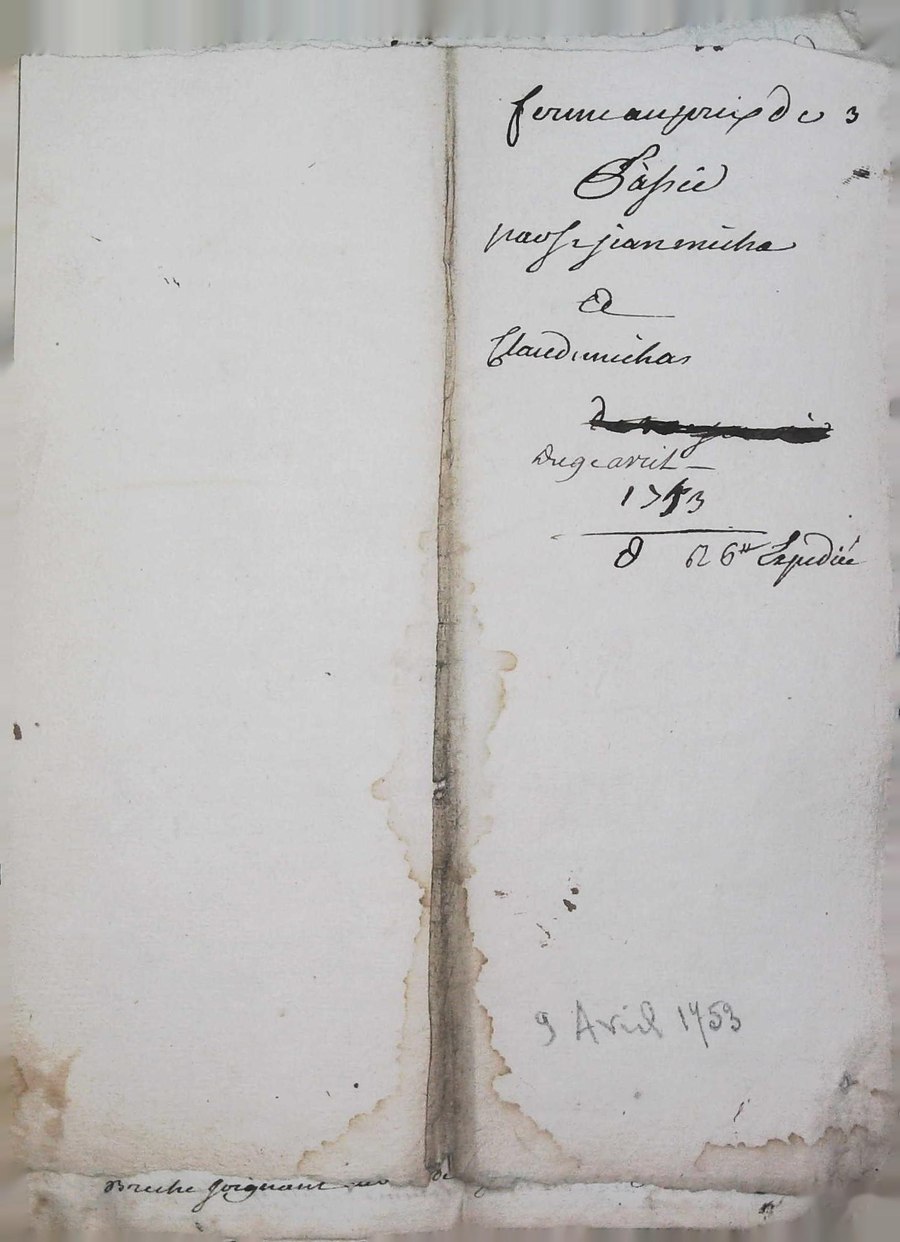 ferme au prix de 3
Passée
par Sr jean micha
Et
Claude michas
Du 9e avril
1753
8 6# Expediée
9 Avril 1753
Breche joignant